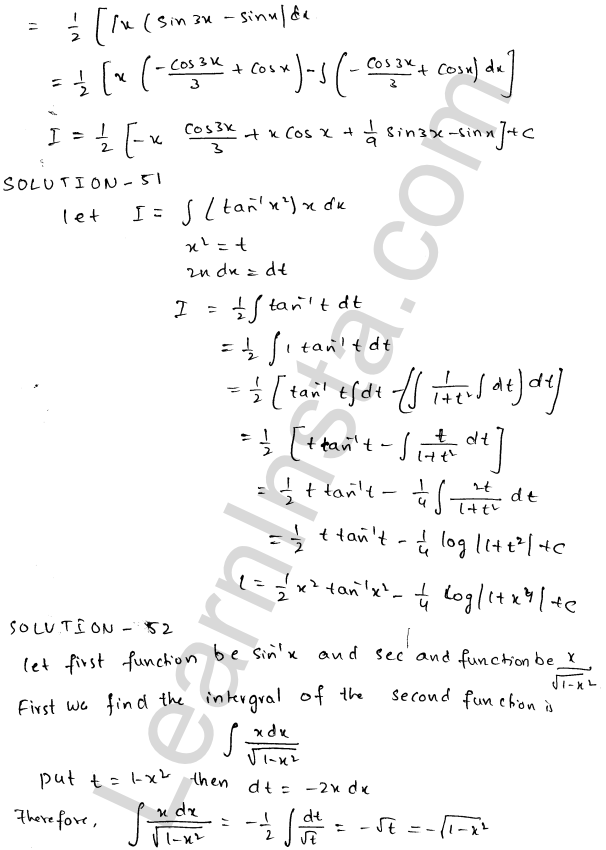 = 1/2 [∫x (sin 3x - sinx) dx
= 1/2 [x (-cos3x/3 + cosx) - ∫(-cos3x/3 + cosx) dx]
I = 1/2 [-x cos3x/3 + x cos x + 1/9 sin3x - sinx] + c
SOLUTION - 51
let I = ∫ (tan⁻¹x²) x dx
x² = t
2x dx = dt
I = 1/2 ∫ tan⁻¹ t dt
= 1/2 ∫ 1 tan⁻¹ t dt
= 1/2 [tan⁻¹ t ∫dt - (∫ 1/(1+t²) ∫ dt) dt]
= 1/2 [t tan⁻¹ t - ∫ t/(1+t²) dt]
= 1/2 t tan⁻¹t - 1/4 ∫ 2t/(1+t²) dt
= 1/2 t tan⁻¹t - 1/4 log |1+t²| + c
I = 1/2 x² tan⁻¹x² - 1/4 log |1+x⁴| + c
SOLUTION - 52
let first function be sin⁻¹x and second function be x/√(1-x²)
First we find the intergral of the second function is
∫ x dx/√(1-x²)
put t = 1-x² then dt = -2x dx
Therefore, ∫ x dx/√(1-x²) = -1/2 ∫ dt/√t = -√t = -√(1-x²)
LearnInsta.com